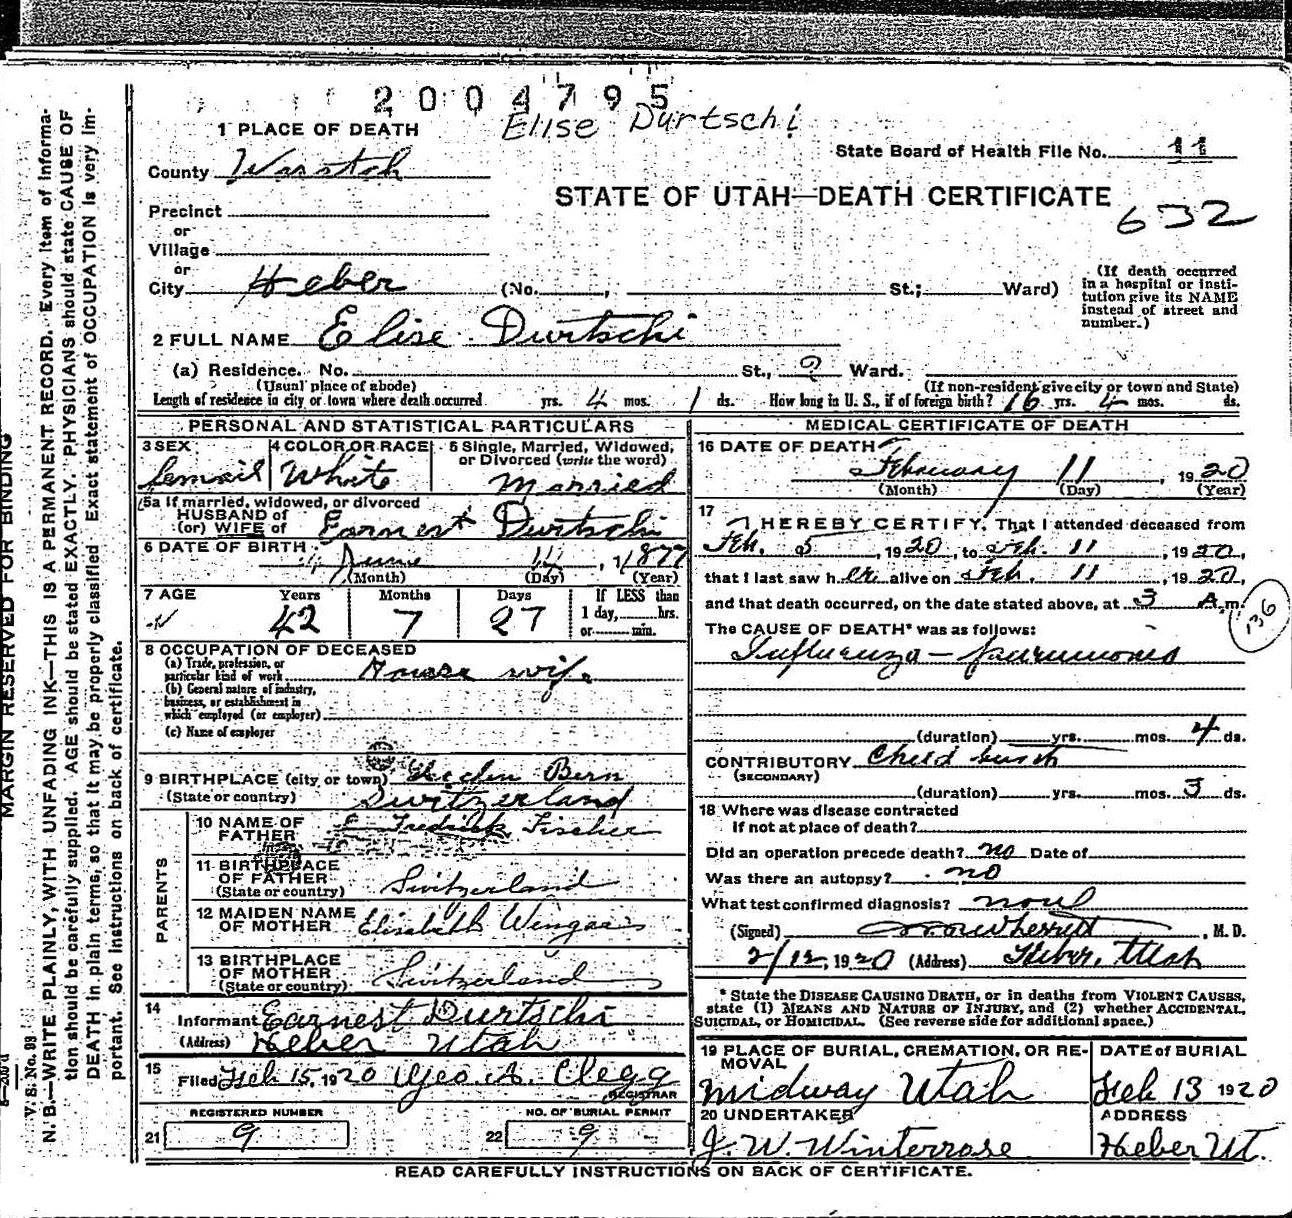 2004795
Elise Durtschi
1 PLACE OF DEATH
State Board of Health File No. 11
County Wasatch
STATE OF UTAH—DEATH CERTIFICATE
632
Precinct
or
Village
or
City Heber (No. , St.; Ward)
(If death occurred in a hospital or institution give its NAME instead of street and number.)
2 FULL NAME Elise Durtschi
(a) Residence. No. St., ? Ward.
(Usual place of abode) (If non-resident give city or town and State)
Length of residence in city or town where death occurred yrs. 4 mos. 1 ds. How long in U. S., if of foreign birth? 16 yrs. 4 mos. ds.
PERSONAL AND STATISTICAL PARTICULARS
3 SEX 4 COLOR OR RACE 5 Single, Married, Widowed, or Divorced (write the word)
femail White Married
5a If married, widowed, or divorced
HUSBAND of
(or) WIFE of Earnest Durtschi
6 DATE OF BIRTH June 14, 1877
(Month) (Day) (Year)
7 AGE Years Months Days If LESS than
42 7 27 1 day, hrs.
or min.
8 OCCUPATION OF DECEASED
(a) Trade, profession, or
particular kind of work House wife
(b) General nature of industry,
business, or establishment in
which employed (or employer)
(c) Name of employer
9 BIRTHPLACE (city or town) Bern
(State or country) Switzerland
PARENTS
10 NAME OF
FATHER Fredrick Fischer
11 BIRTHPLACE
OF FATHER
(State or country) Switzerland
12 MAIDEN NAME
OF MOTHER Elisabeth
13 BIRTHPLACE
OF MOTHER
(State or country) Switzerland
14
Informant Earnest Durtschi
(Address) Heber Utah
15
Filed Feb 15, 1920 Geo A. Clegg
REGISTRAR
REGISTERED NUMBER NO. OF BURIAL PERMIT
21 9 22 9
MEDICAL CERTIFICATE OF DEATH
16 DATE OF DEATH
February 11, 1920
(Month) (Day) (Year)
17
I HEREBY CERTIFY, That I attended deceased from
Feb. 5, 1920, to Feb. 11, 1920,
that I last saw her alive on Feb. 11, 1920,
and that death occurred, on the date stated above, at 3 A.m.
136
The CAUSE OF DEATH* was as follows:
Influenza - pneumonia
(duration) yrs. mos. 4 ds.
CONTRIBUTORY Child birth
(SECONDARY)
(duration) yrs. mos. 3 ds.
18 Where was disease contracted
If not at place of death?
Did an operation precede death? no Date of
Was there an autopsy? no
What test confirmed diagnosis? none
(Signed) , M. D.
2/12, 1920 (Address) Heber, Utah
* State the DISEASE CAUSING DEATH, or in deaths from VIOLENT CAUSES,
state (1) MEANS AND NATURE OF INJURY, and (2) whether ACCIDENTAL,
SUICIDAL, or HOMICIDAL. (See reverse side for additional space.)
19 PLACE OF BURIAL, CREMATION, OR REMOVAL DATE of BURIAL
Midway Utah Feb 13 1920
20 UNDERTAKER ADDRESS
J. W. Winterrose Heber Ut.
READ CAREFULLY INSTRUCTIONS ON BACK OF CERTIFICATE.
MARGIN RESERVED FOR BINDING
V. S. No. 99
N. B.—WRITE PLAINLY, WITH UNFADING INK—THIS IS A PERMANENT RECORD. Every item of informa-
tion should be carefully supplied. AGE should be stated EXACTLY. PHYSICIANS should state CAUSE OF
DEATH in plain terms, so that it may be properly classified. Exact statement of OCCUPATION is very im-
portant. See instructions on back of certificate.